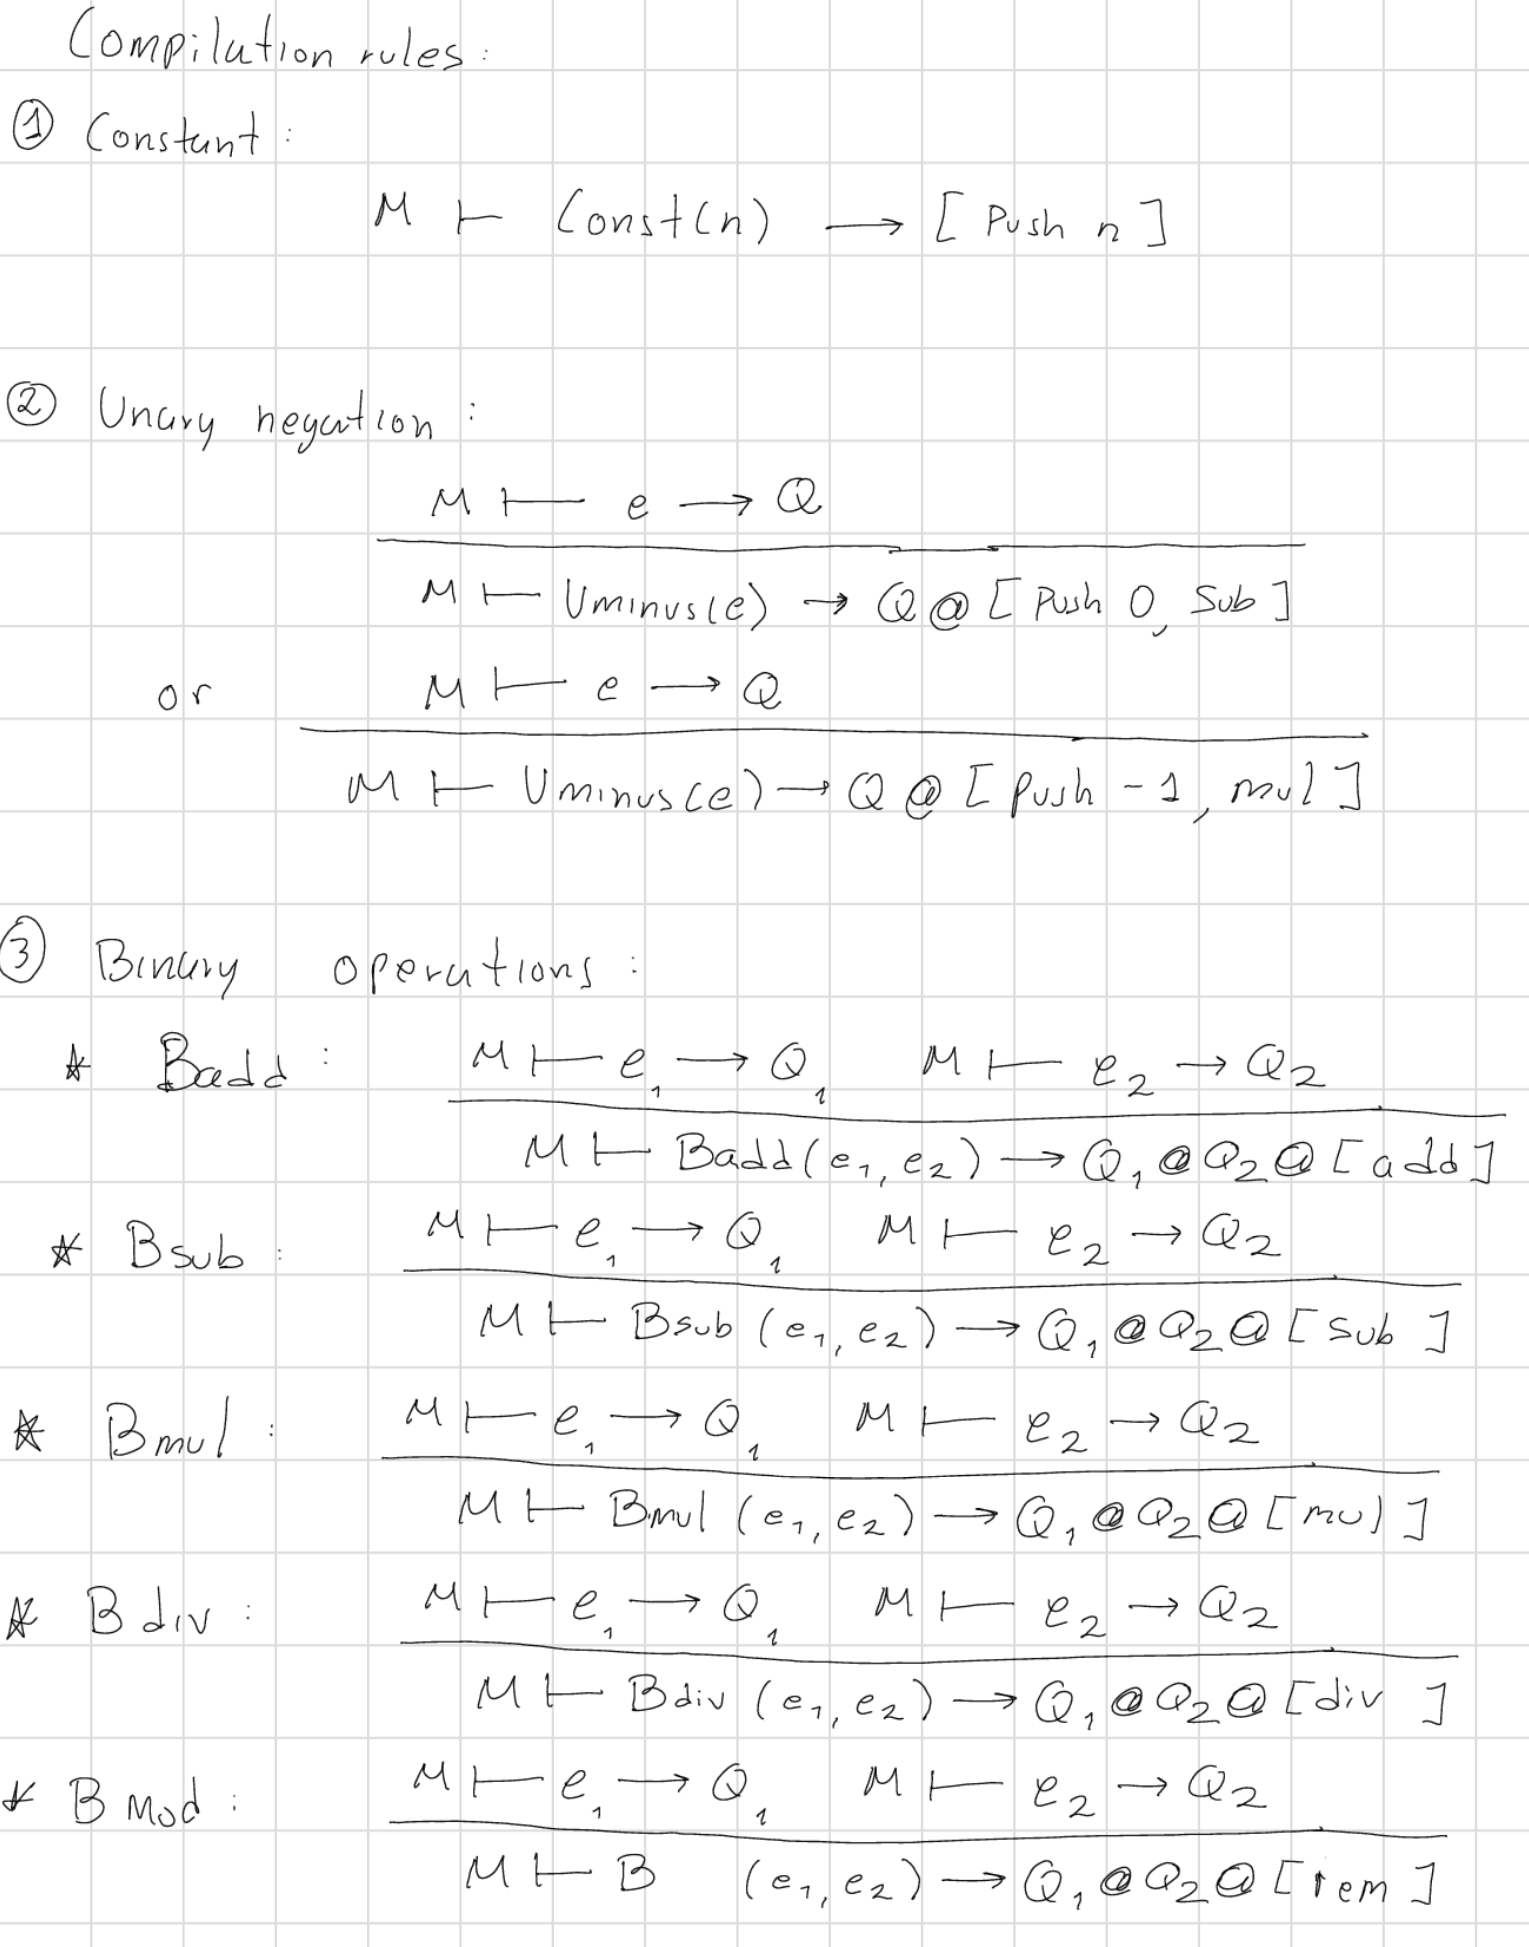 Compilation rules:
① Constant:
M ⊢ Const(n) → [Push n]
② Unary negation:
M ⊢ e → Q
M ⊢ Uminus(e) → Q@[Push 0, Sub]
or M ⊢ e → Q
M ⊢ Uminus(e) → Q@[Push -1, mul]
③ Binary operations:
* Badd: M ⊢ e₁ → Q₁ M ⊢ e₂ → Q₂
M ⊢ Badd(e₁, e₂) → Q₁@Q₂@[add]
* Bsub: M ⊢ e₁ → Q₁ M ⊢ e₂ → Q₂
M ⊢ Bsub(e₁, e₂) → Q₁@Q₂@[sub]
* Bmul: M ⊢ e₁ → Q₁ M ⊢ e₂ → Q₂
M ⊢ Bmul(e₁, e₂) → Q₁@Q₂@[mul]
* Bdiv: M ⊢ e₁ → Q₁ M ⊢ e₂ → Q₂
M ⊢ Bdiv(e₁, e₂) → Q₁@Q₂@[div]
* BMod: M ⊢ e₁ → Q₁ M ⊢ e₂ → Q₂
M ⊢ B (e₁, e₂) → Q₁@Q₂@[rem]